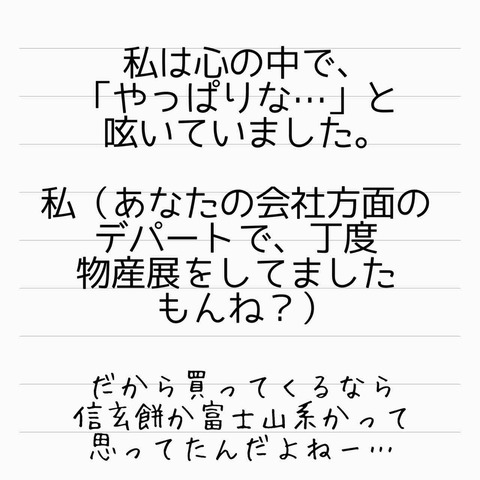 私は心の中で、
「やっぱりな…」と
呟いていました。
私（あなたの会社方面の
デパートで、丁度
物産展をしてました
もんね？）
だから買ってくるなら
信玄餅か富士山系かって
思ってたんだよねー…